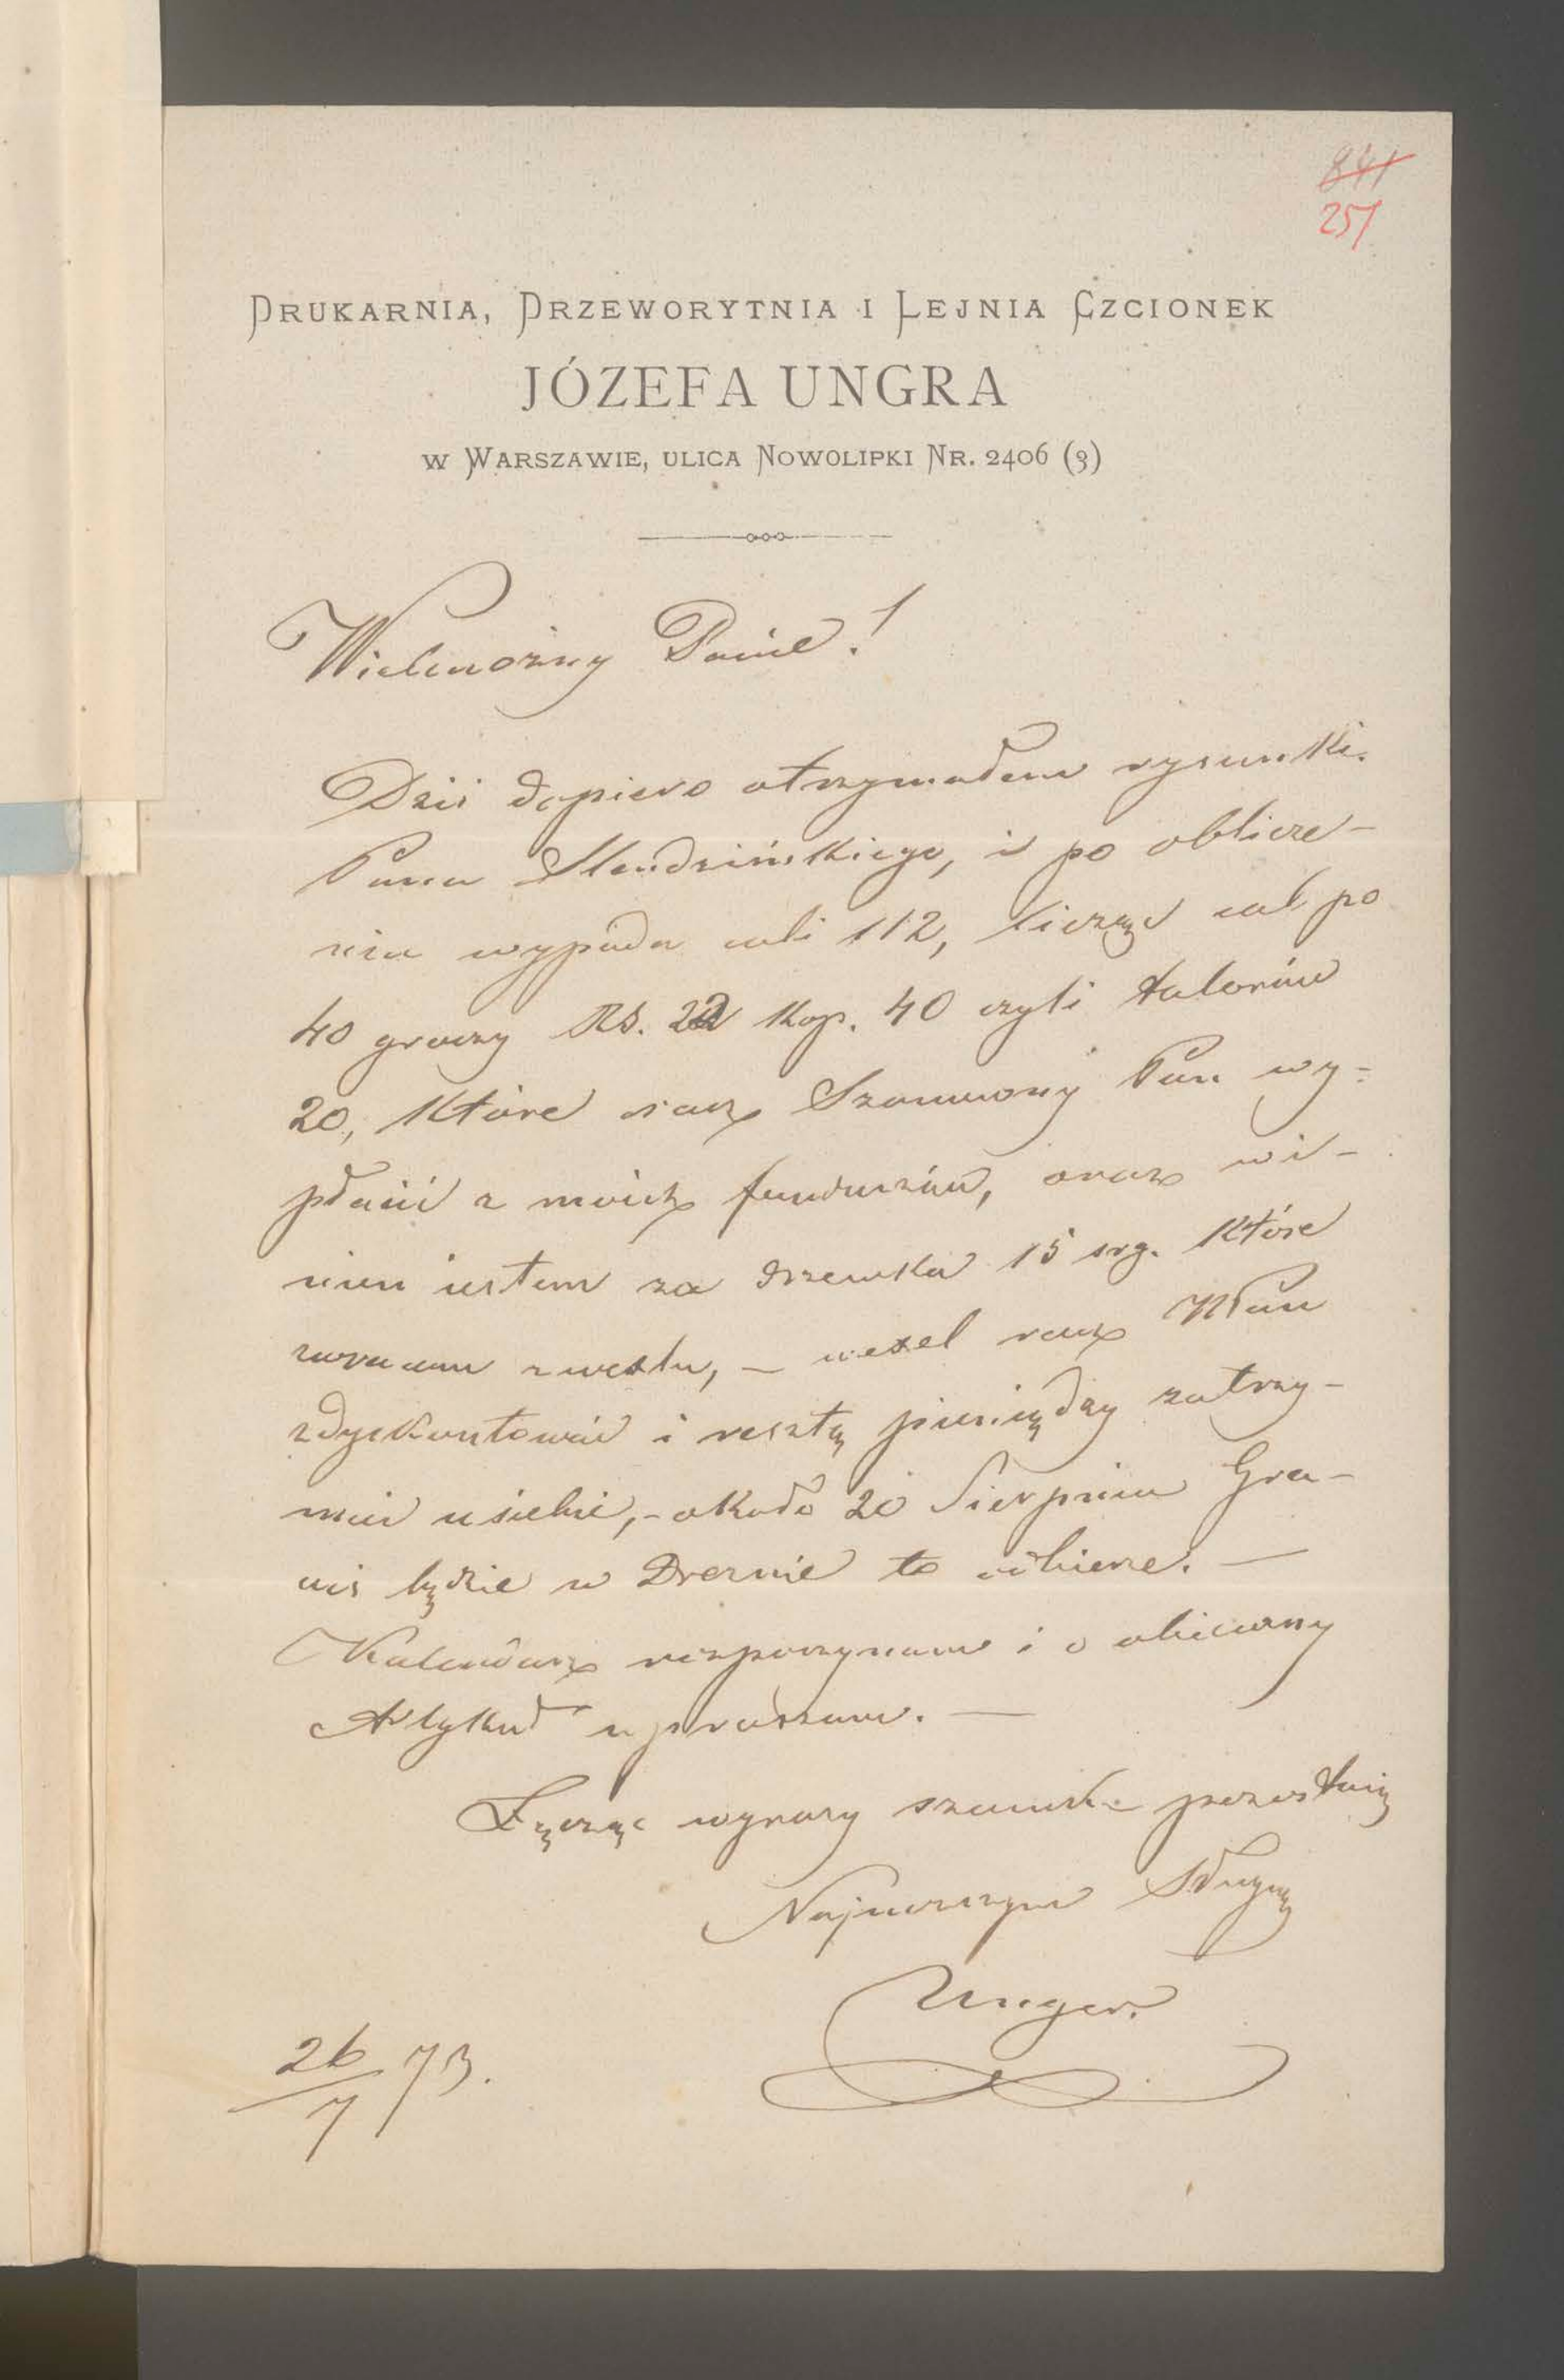 841
251
DRUKARNIA, DRZEWORYTNIA I LEJNIA CZCIONEK
JÓZEFA UNGRA
W WARSZAWIE, ULICA NOWOLIPKI NR. 2406 (3)
Wielmożny Panie!
Dziś dopiero otrzymałem rysunki
Pana Slendzińskiego, i po oblicze-
niu wypada cali 112, licząc cal po
40 groszy RS. 22 kop. 40 czyli talarów
20, które racz Szanowny Pan wy-
płacić z moich funduszów, oraz wi-
nien jestem za drzewka 15 srg. które
zwracam z wexlu, - wexel racz WPan
zdyskontować i resztę pieniędzy zatrzy-
mać u siebie, - około 20 Sierpnia Gra-
cis będzie w Dreznie to odbierze. —
Kalendarz rozpoczynam i o obiecany
Artykuł upraszam. —
Łącząc wyrazy szacunku pozostaję
Najniższym Sługą
Unger.
26/7 73.